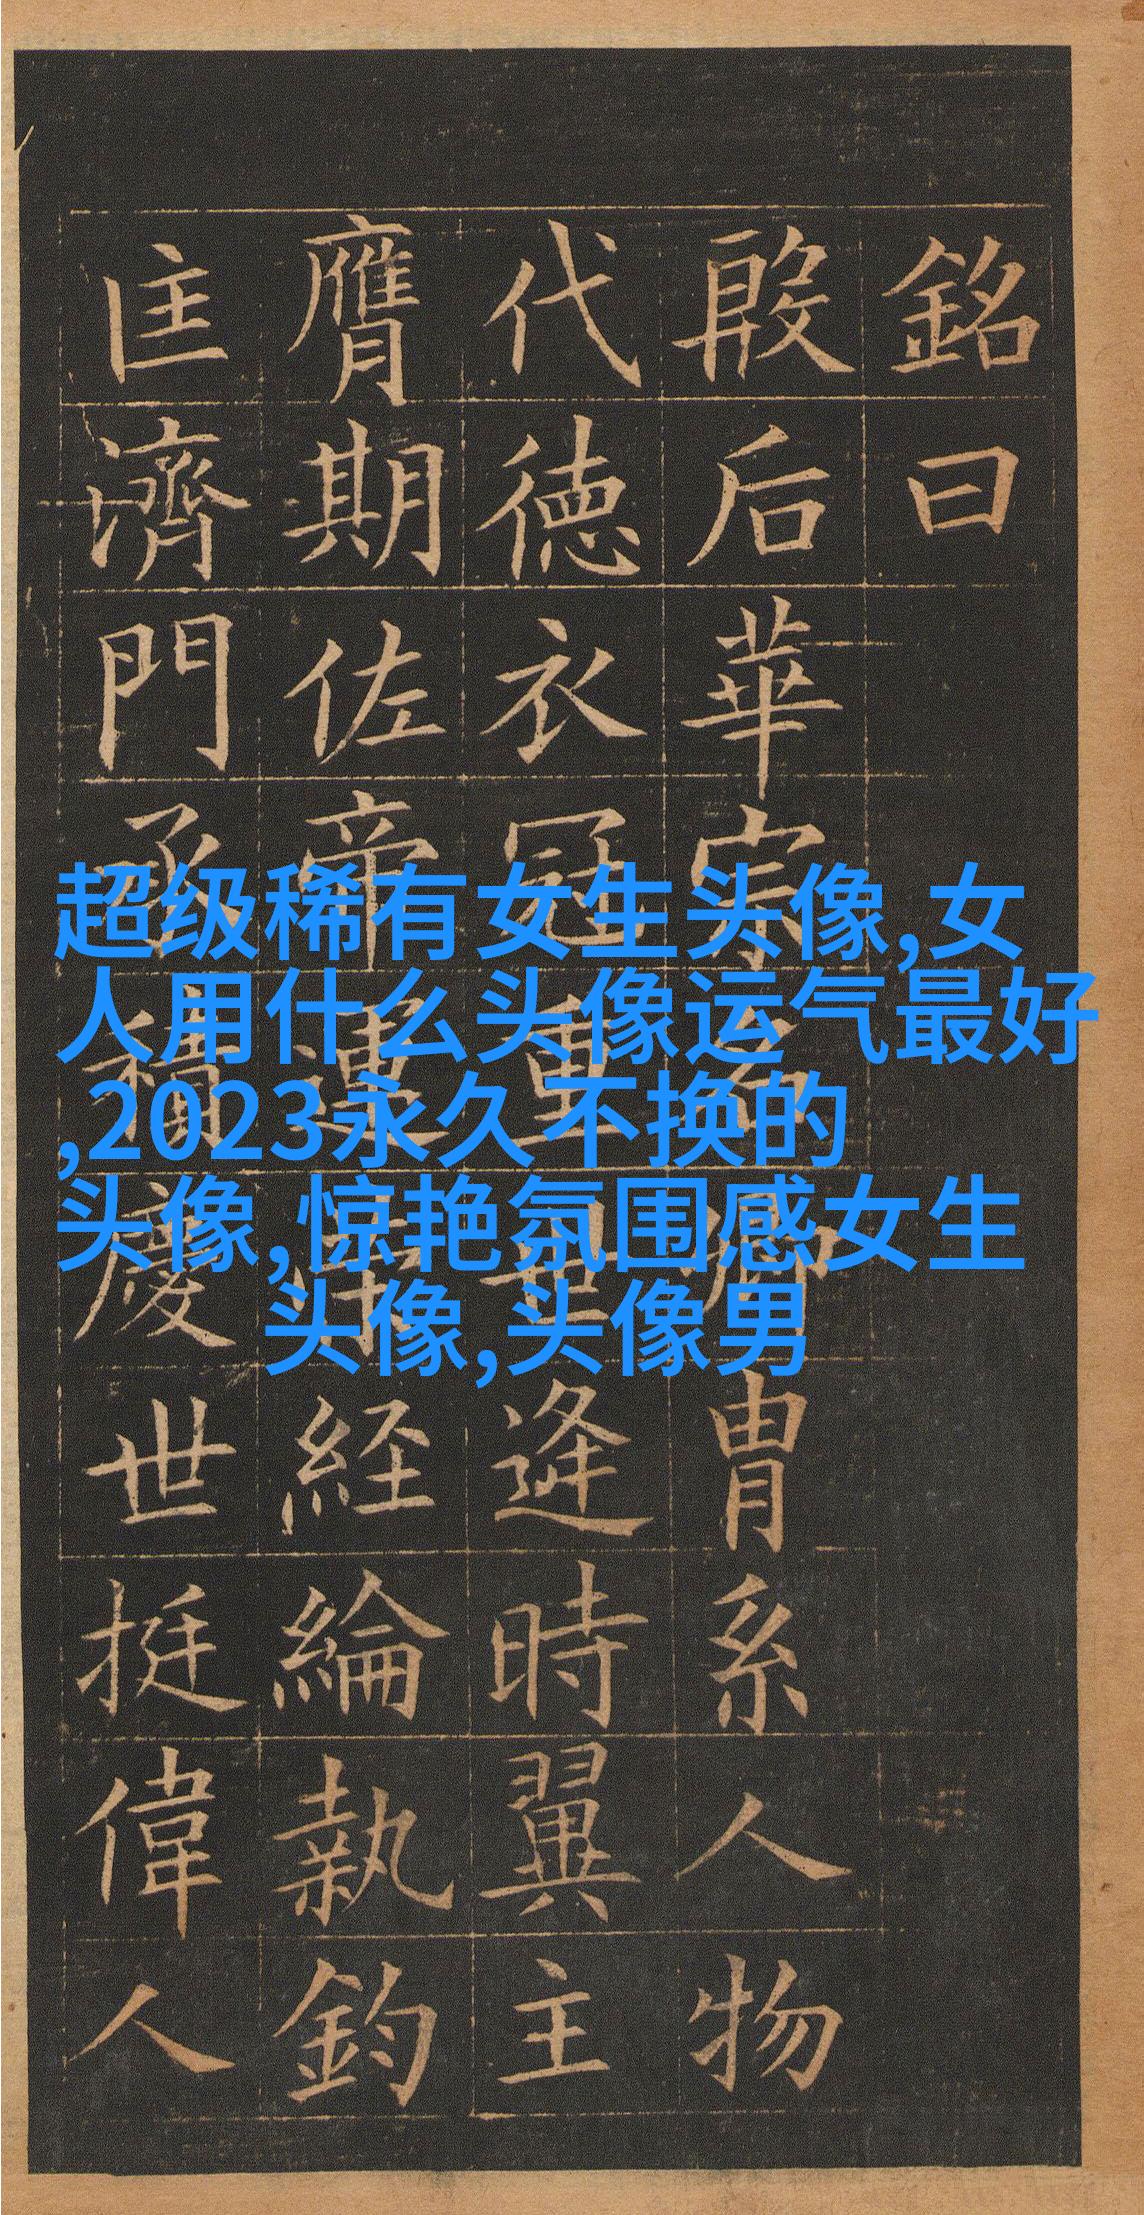 銘曰
殷后華宗名卿胄系人物
代徳衣冠重世逢時翼主
膺期佐帝運経綸執鈞
匡濟門承積慶世挺偉人
超级稀有女生头像,女
人用什么头像运气最好
,2023永久不换的
头像,惊艳氛围感女生
头像,头像男